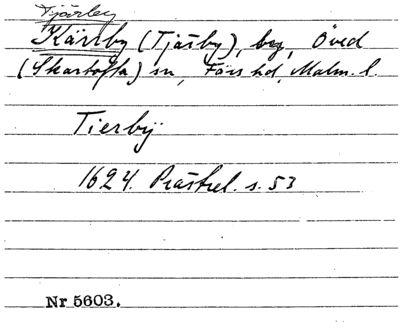 Tjärby
Kärrby (Tjärby), by, Öved
(Skartofta) sn, Färs hd, Malm. l.
Tierbÿ
1624. Prästrel. s. 53
Nr 5603.